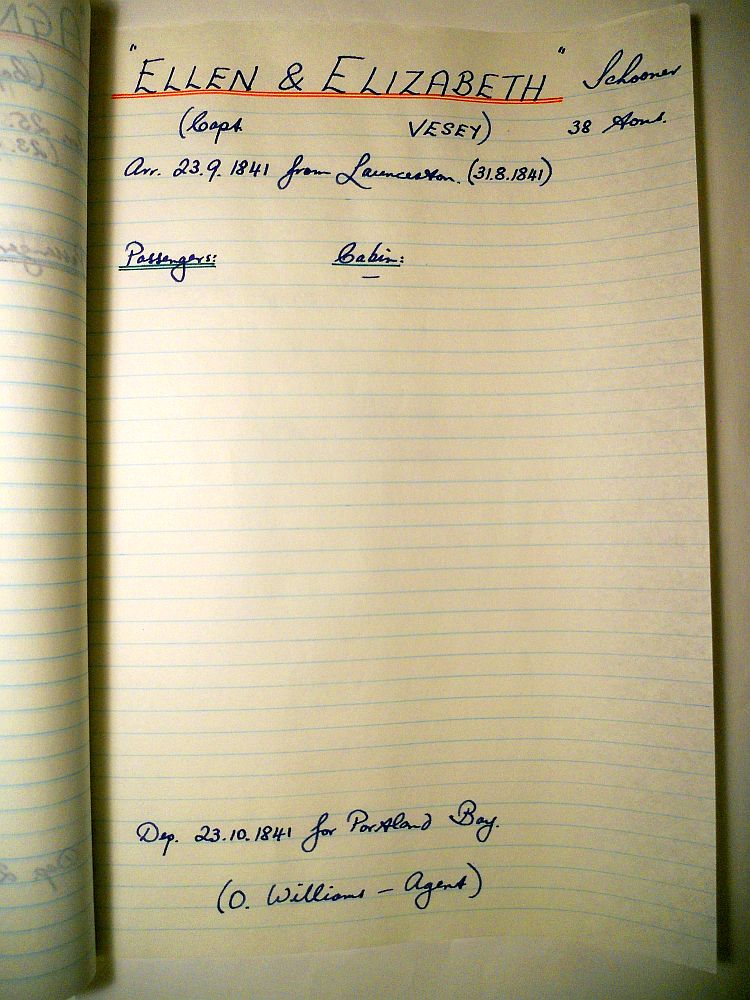 "ELLEN & ELIZABETH" Schooner
(Capt. VESEY) 38 tons.
Arr. 23.9.1841 from Launceston. (31.8.1841)
Passengers: Cabin:
—
Dep. 23.10.1841 for Portland Bay.
(O. Williams – Agent)